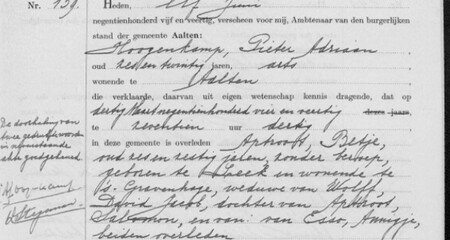 Nr. 139.
Heden, elf Juni
negentienhonderd vijf en veertig, verscheen voor mij, Ambtenaar van den burgerlijken
stand der gemeente Aalten:
Hoogenkamp, Pieter Adriaan
oud zes en twintig jaren, arts
wonende te Aalten
die verklaarde, daarvan uit eigen wetenschap kennis dragende, dat op
dertig Maart negentienhonderd vier en veertig dezes jaars,
te zeventien uur dertig
in deze gemeente is overleden Aptroot, Betje,
oud zes en zestig jaren, zonder beroep,
geboren te Sneek en wonende te
's-Gravenhage, weduwe van Wolff,
David Jacob, dochter van Aptroot,
Salomon, en van: van Esso, Annigje,
beiden overleden
De doorhaling van
twee gedrukte woorden
in nevenstaande
akte goedgekeurd.